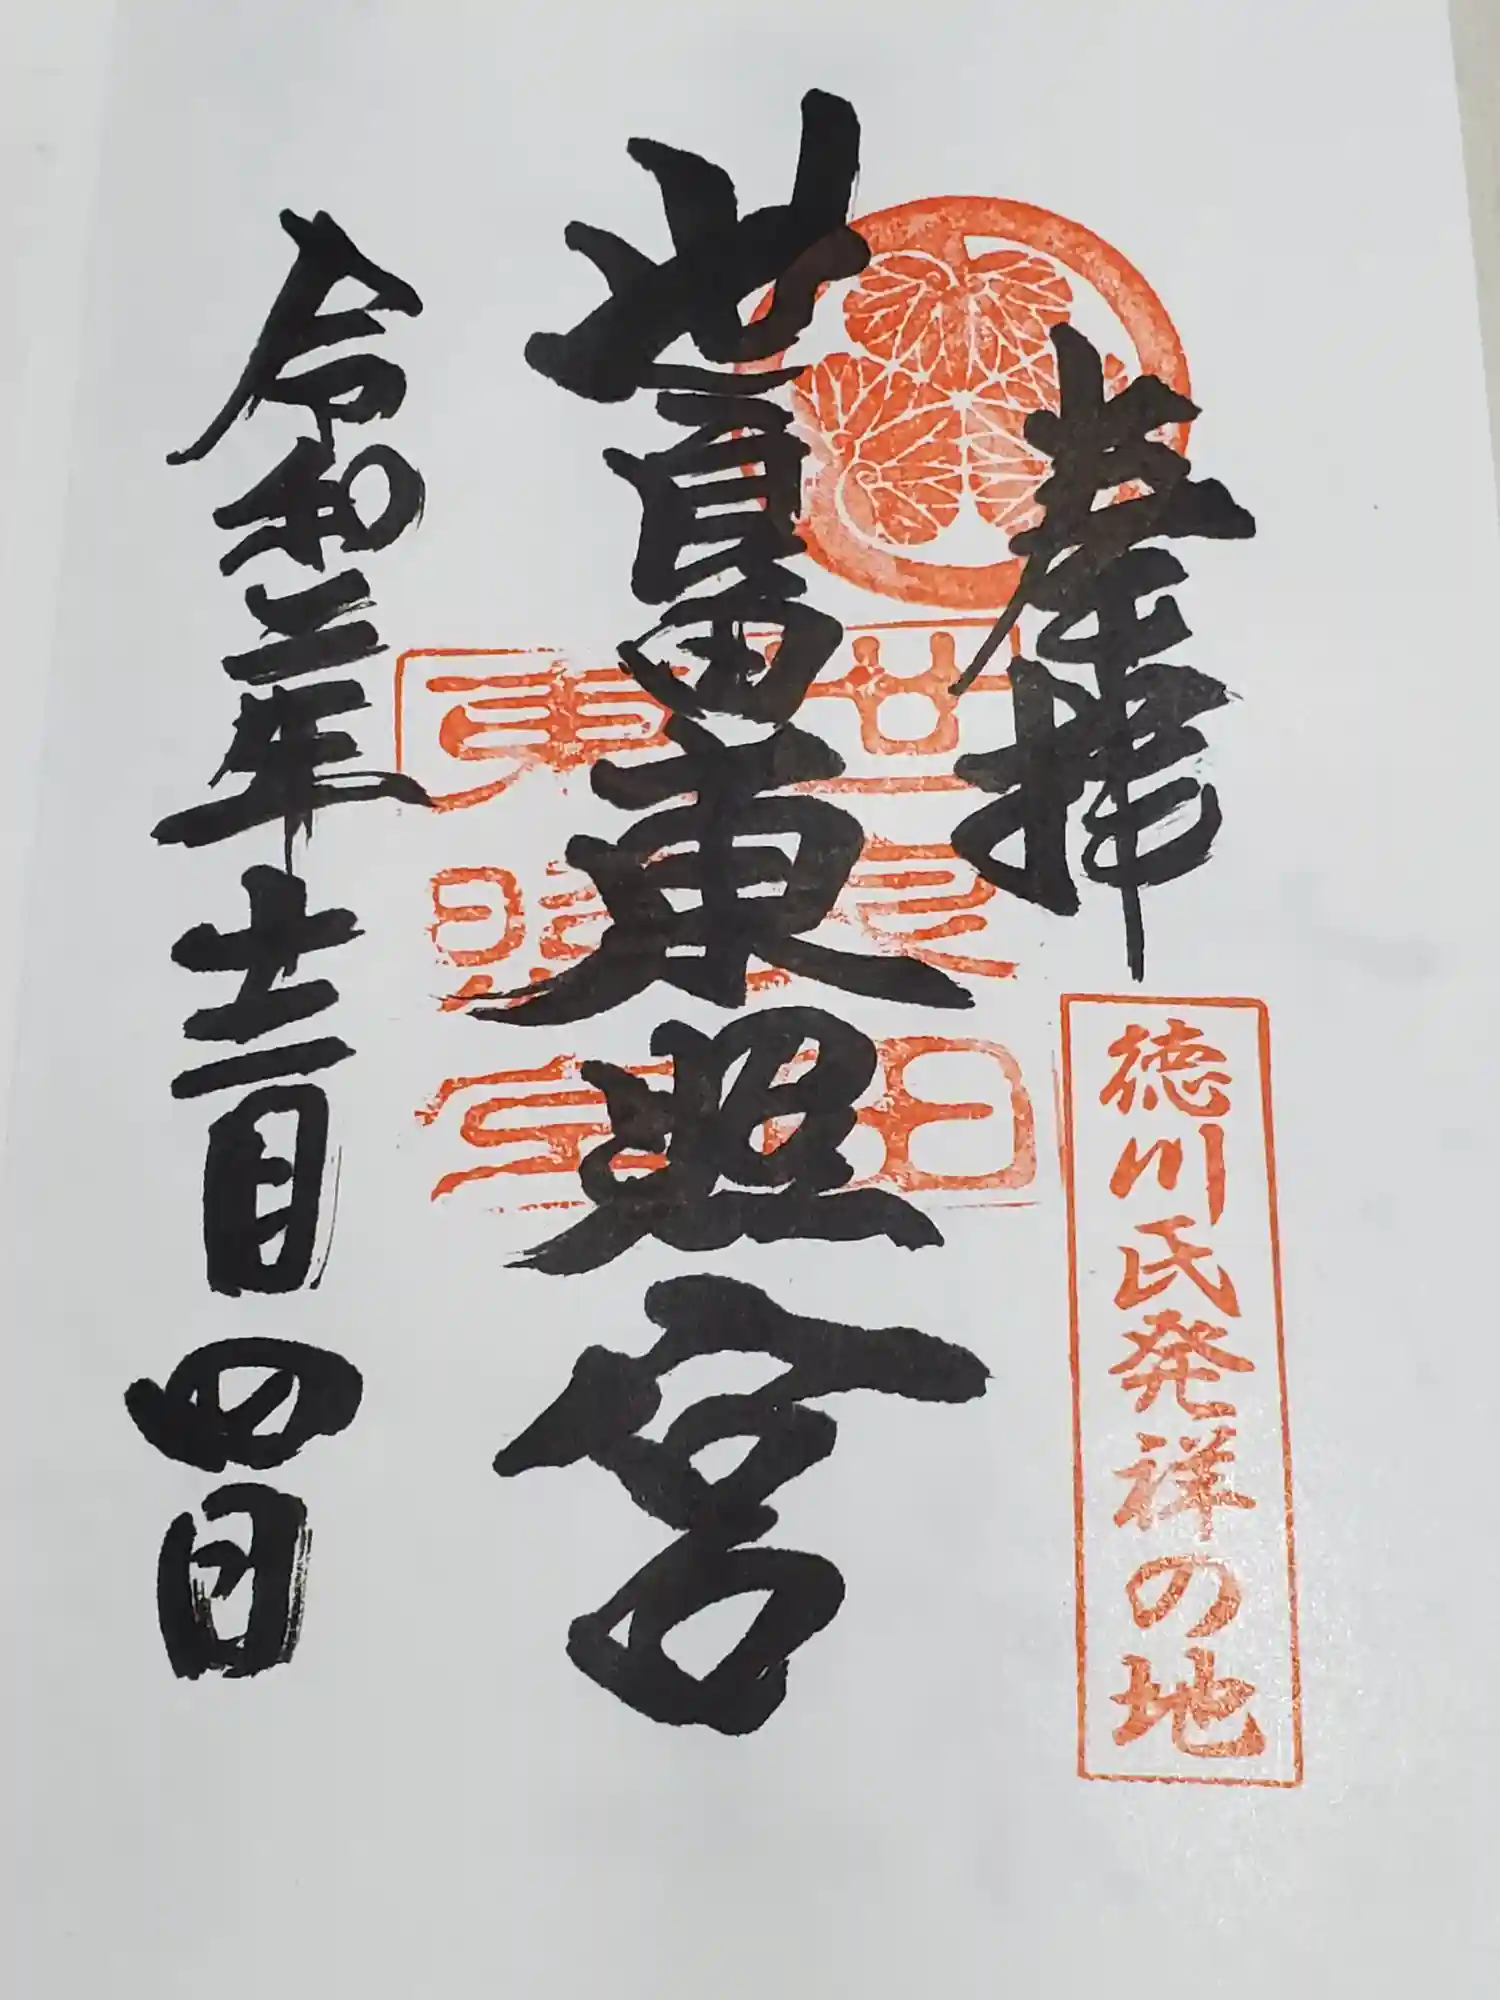 奉拝
徳川氏発祥の地
世良田東照宮
世良田
東照宮
令和二年十二月四日